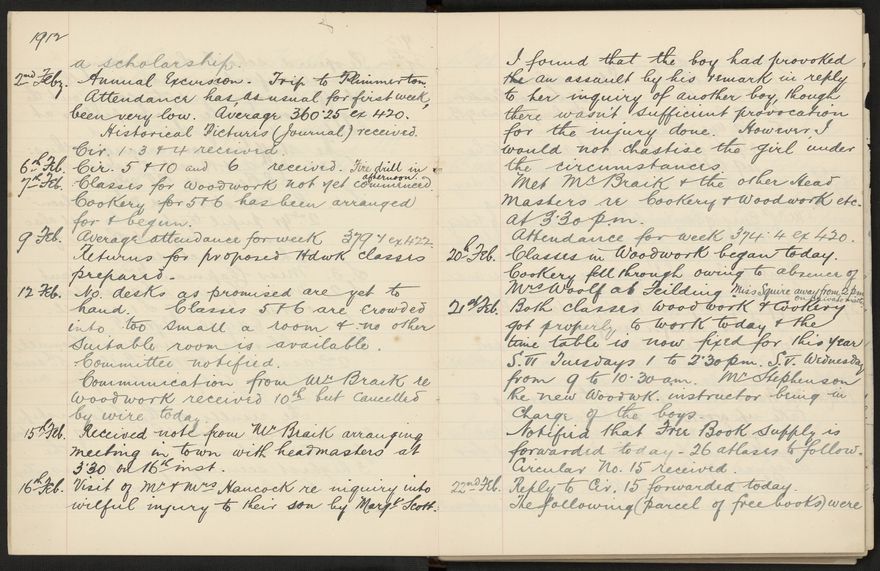 1912
a scholarship.
2nd Feby. Annual Excursion. Trip to Plimmerton.
Attendance has, as usual for first week,
been very low. Average 360·25 ex 420.
Historical Pictures (Journal) received.
Cir. 1·3 & 4 received.
6th Feb. Cir. 5 & 10 and 6 received. Fire drill in afternoon.
7th Feb. Classes for woodwork not yet commenced
Cookery for 5&6 has been arranged
for & begun.
9 Feb. Average attendance for week 379·7 ex 422.
Returns for proposed Hdwk classes
prepared.
12 Feb. No desks as promised are yet to
hand. Classes 5&6 are crowded
into too small a room & no other
suitable room is available.
Committee notified.
Communication from Mr Braik re
woodwork received 10th but cancelled
by wire today.
15th Feb. Received note from Mr Braik arranging
meeting in town with headmasters at
3·30 on 16th inst.
16th Feb. Visit of Mr & Mrs Hancock re inquiry into
wilful injury to their son by Margt. Scott.
I found that the boy had provoked
the an assault by his remark in reply
to her inquiry of another boy, though
there wasn't sufficient provocation
for the injury done. However, I
would not chastise the girl under
the circumstances.
Met Mr Braik & the other Head
Masters re Cookery & Woodwork etc.
at 3·30 p.m.
Attendance for week 374·4 ex 420.
20th Feb. Classes in Woodwork began today.
Cookery fell through owing to absence of
Mrs Woolf at Feilding. Miss Squire away from 2 pm
on private
21st Feb. Both classes woodwork & Cookery
got properly to work today & the
time table is now fixed for this year
S.VI Tuesdays 1 to 2·30 pm. S.V. Wednesday
from 9 to 10·30 am. Mr Stephenson
the new Woodwk. instructor being in
charge of the boys.
Notified that Free Book Supply is
forwarded today - 26 atlases to follow.
Circular No. 15 received.
22nd Feb. Reply to Cir. 15 forwarded today.
The following (parcel of free books) were